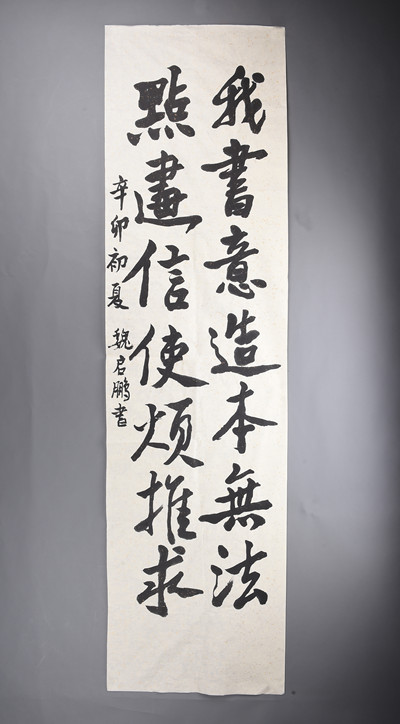 我書意造本無法
點畫信使煩推求
辛卯初夏 魏启鹏書